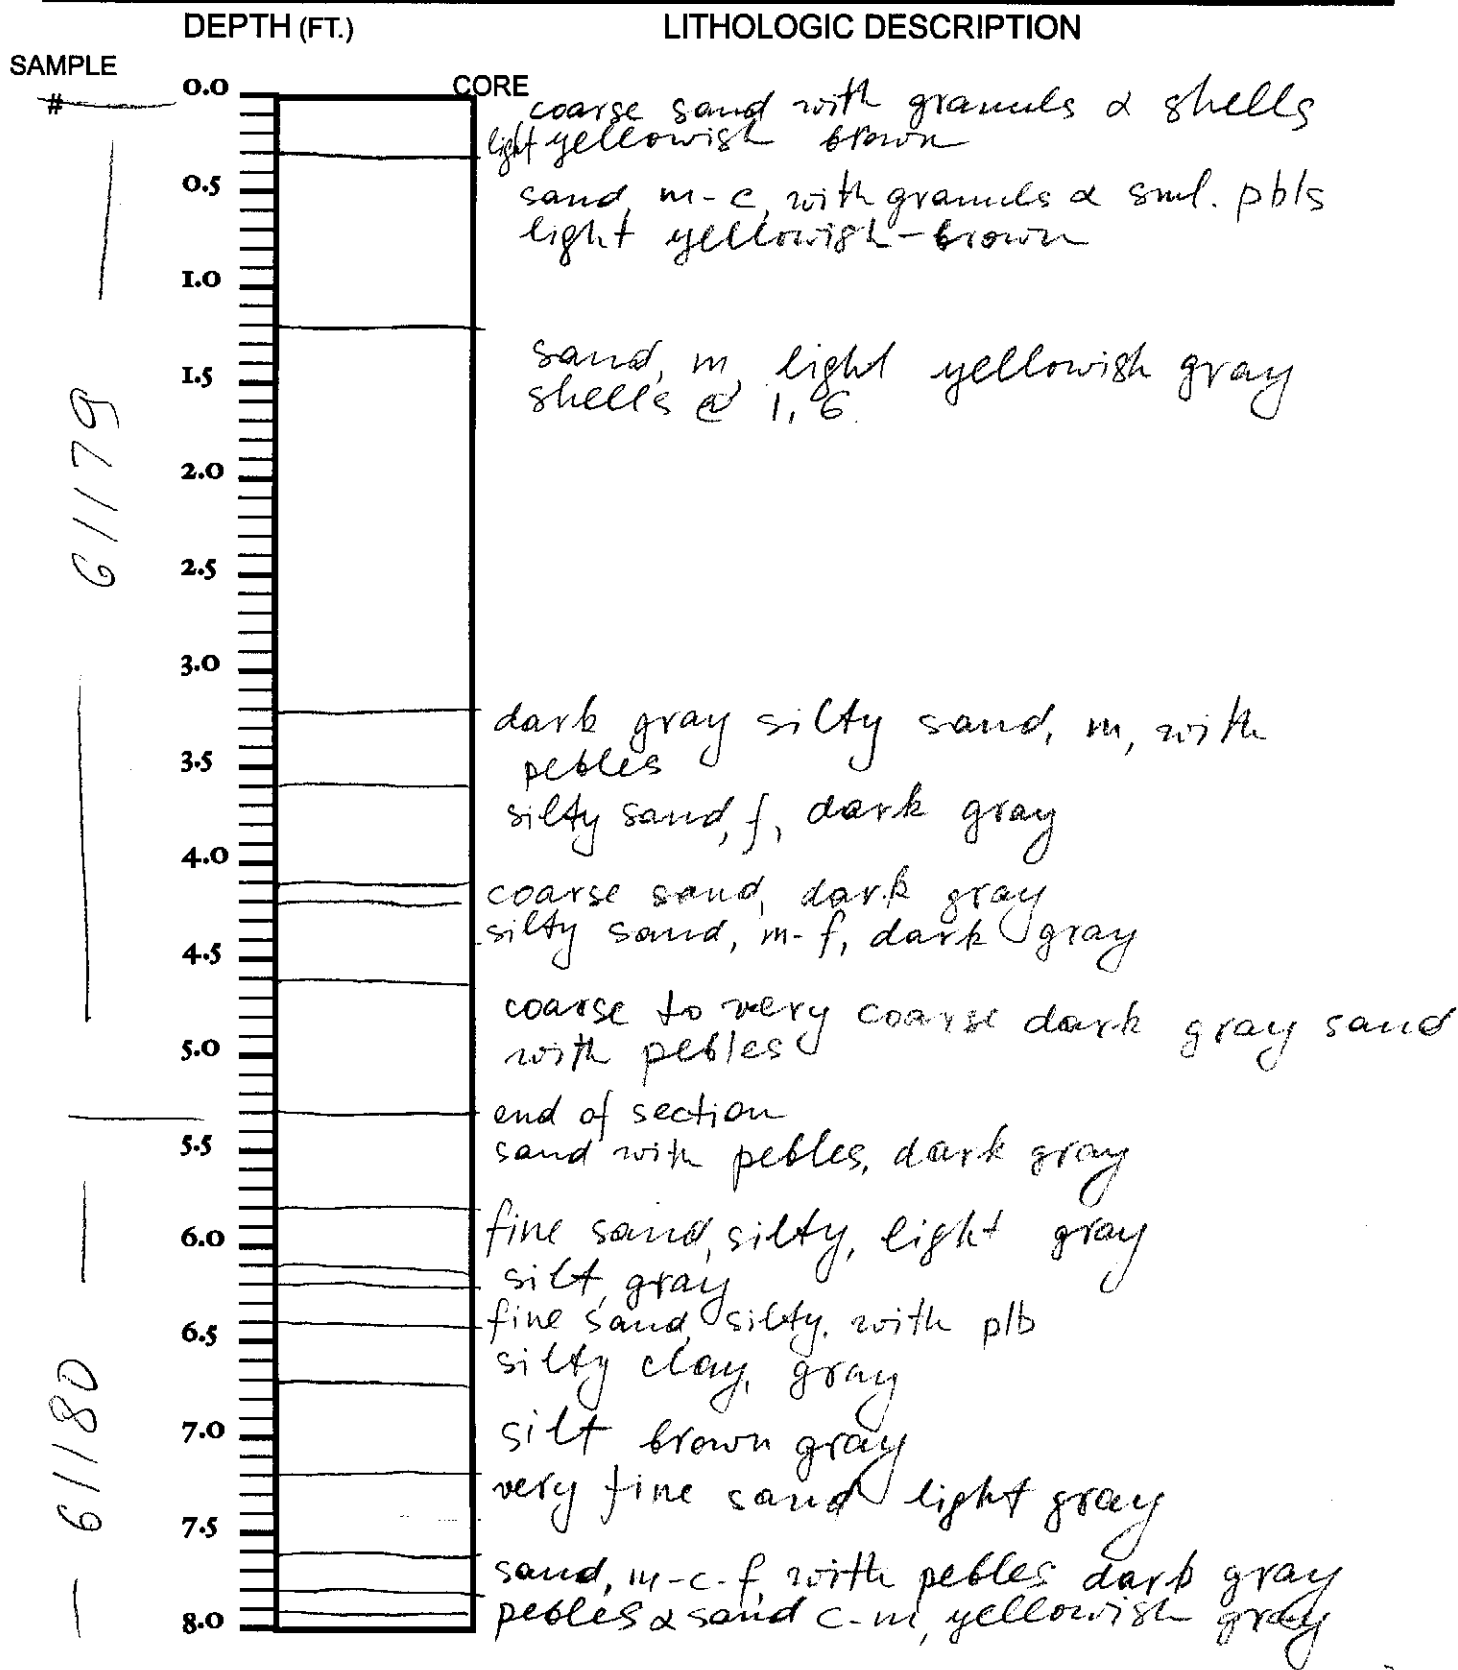 DEPTH (FT.) LITHOLOGIC DESCRIPTION
SAMPLE
#
CORE
0.0
coarse sand with granuls & shells
light yellowish brown
0.5
sand, m-c, with granuls & sml. pbls
light yellowish-brown
1.0
sand, m, light yellowish gray
1.5
shells @ 1,6.
61179
2.0
2.5
3.0
dark gray silty sand, m, with
pebles
3.5
silty sand, f, dark gray
4.0
coarse sand, dark gray
silty sand, m-f, dark gray
4.5
coarse to very coarse dark gray sand
with pebles
5.0
end of section
sand with pebles, dark gray
5.5
fine sand, silty, light gray
6.0
silt, gray
fine sand, silty, with plb
6.5
silty clay, gray
61180
silt brown gray
7.0
very fine sand light gray
7.5
sand, m-c-f, with pebles dark gray
pebles & sand c-m, yellowish gray
8.0